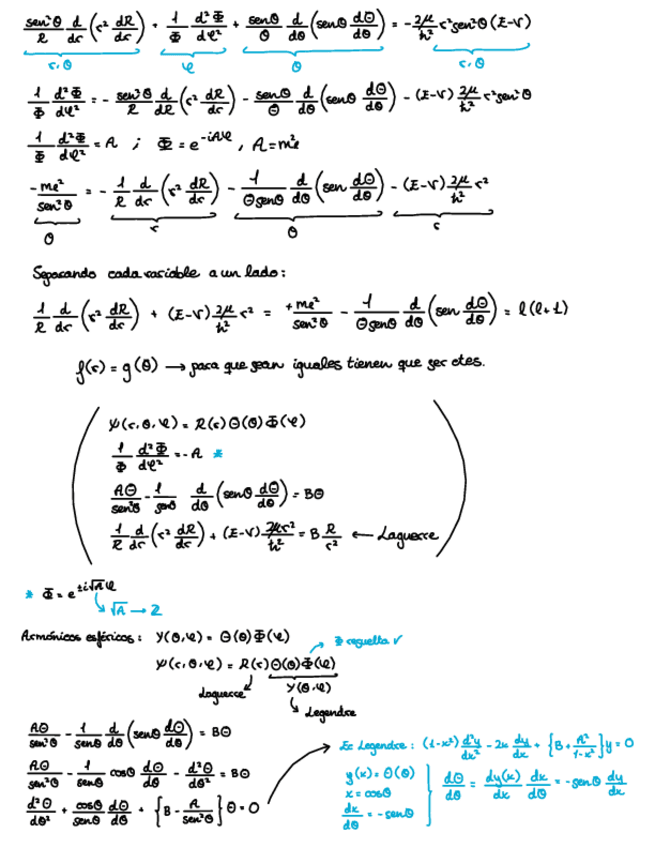 sen²θ/R d/dr (r² dR/dr) + 1/Φ d²Φ/dφ² + senθ/Θ d/dθ (senθ dΘ/dθ) = -2μ/ħ² r² sen²θ (E-V)
r,θ φ θ r,θ
1/Φ d²Φ/dφ² = - sen²θ/R d/dR (r² dR/dr) - senθ/Θ d/dθ (senθ dΘ/dθ) - (E-V) 2μ/ħ² r² sen²θ
1/Φ d²Φ/dφ² = A ; Φ = e^{-iAφ}, A = m_e²
-m_e²/sen²θ = - 1/R d/dr (r² dR/dr) - 1/Θsenθ d/dθ (sen dΘ/dθ) - (E-V) 2μ/ħ² r²
θ r θ r
Separando cada variable a un lado:
1/R d/dr (r² dR/dr) + (E-V) 2μ/ħ² r² = +m_e²/sen²θ - 1/Θsenθ d/dθ (sen dΘ/dθ) = l(l+1)
f(r) = g(θ) → para que sean iguales tienen que ser ctes.
ψ(r,θ,φ) = R(r)Θ(θ)Φ(φ)
1/Φ d²Φ/dφ² = -A *
AΘ/sen²θ - 1/senθ d/dθ (senθ dΘ/dθ) = BΘ
1/R d/dr (r² dR/dr) + (E-V) 2μr²/ħ² = B R/r² ← Laguerre
* Φ = e^{±i√Aφ}
√A → Z
Armónicos esféricos: Y(θ,φ) = Θ(θ)Φ(φ)
Φ resuelta ✓
ψ(r,θ,φ) = R(r)Θ(θ)Φ(φ)
Laguerre Y(θ,φ)
Legendre
AΘ/sen²θ - 1/senθ d/dθ (senθ dΘ/dθ) = BΘ
AΘ/sen²θ - 1/senθ cosθ dΘ/dθ - d²Θ/dθ² = BΘ
d²Θ/dθ² + cosθ/senθ dΘ/dθ + {B - A/sen²θ} Θ = 0
Ec Legendre: (1-x²) d²y/dx² - 2x dy/dx + {B + A²/1-x²} y = 0
y(x) = Θ(θ)
x = cosθ
dx/dθ = -senθ
dΘ/dθ = dy(x)/dx dx/dθ = -senθ dy/dx